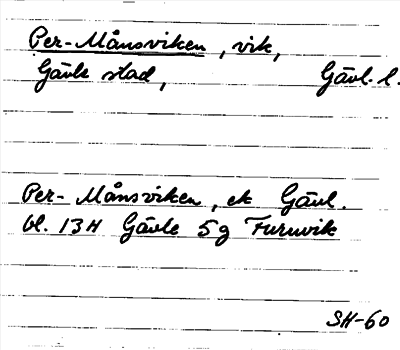 Per-Månsviken, vik,
Gävle stad, Gävl. l.
Per-Månsviken, ek Gävl.
bl. 13H Gävle 5g Furuvik
SH-60